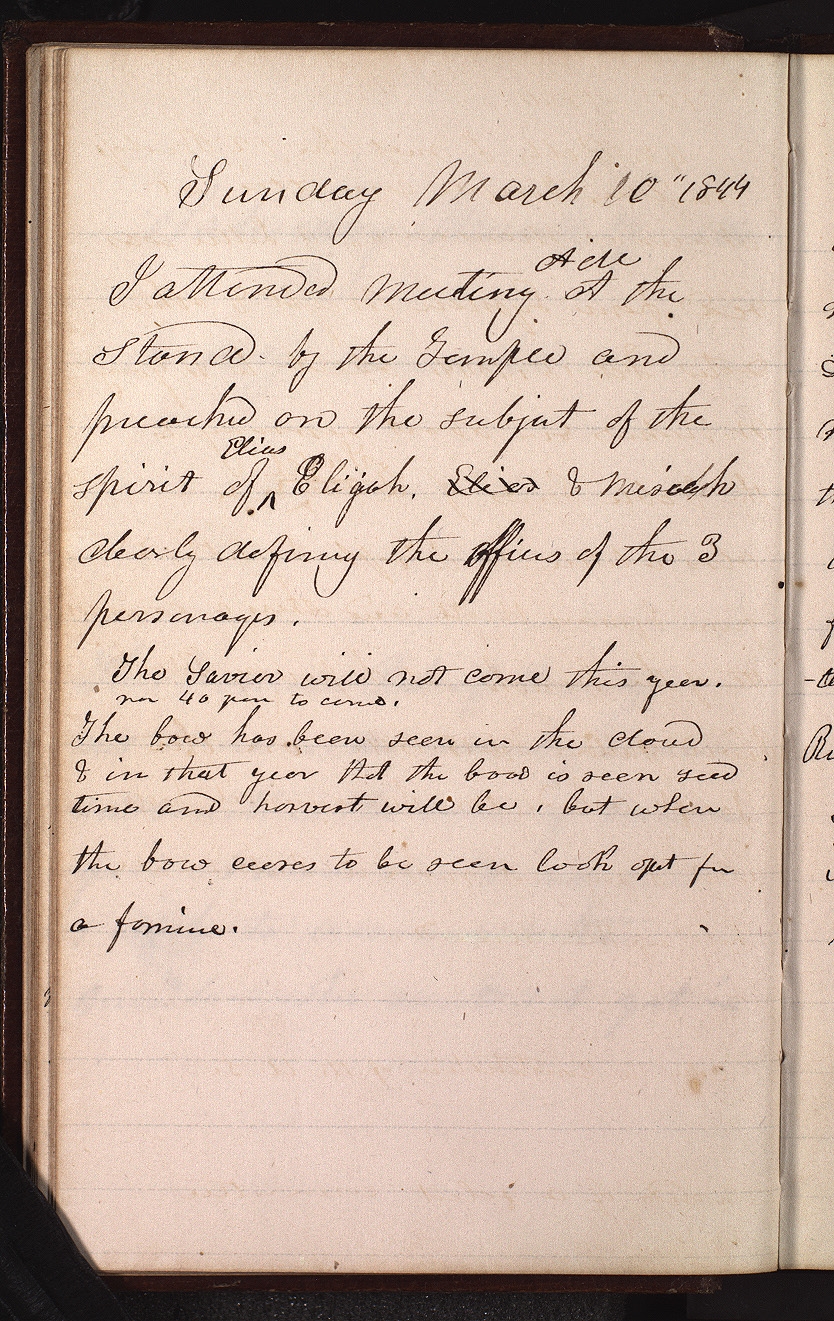 Sunday March 10" 1844
I attended meeting at the
stand. by the Temple and
preached on the subject of the
Elias
spirit of ^ Elijah. Elias & Mesiah
clearly defining the offices of the 3
personages.
The Savior will not come this year.
nor 40 years to come.
The bow has been seen in the cloud
& in that year that the bow is seen seed
time and harvest will be. but when
the bow ceases to be seen look out for
a famine.